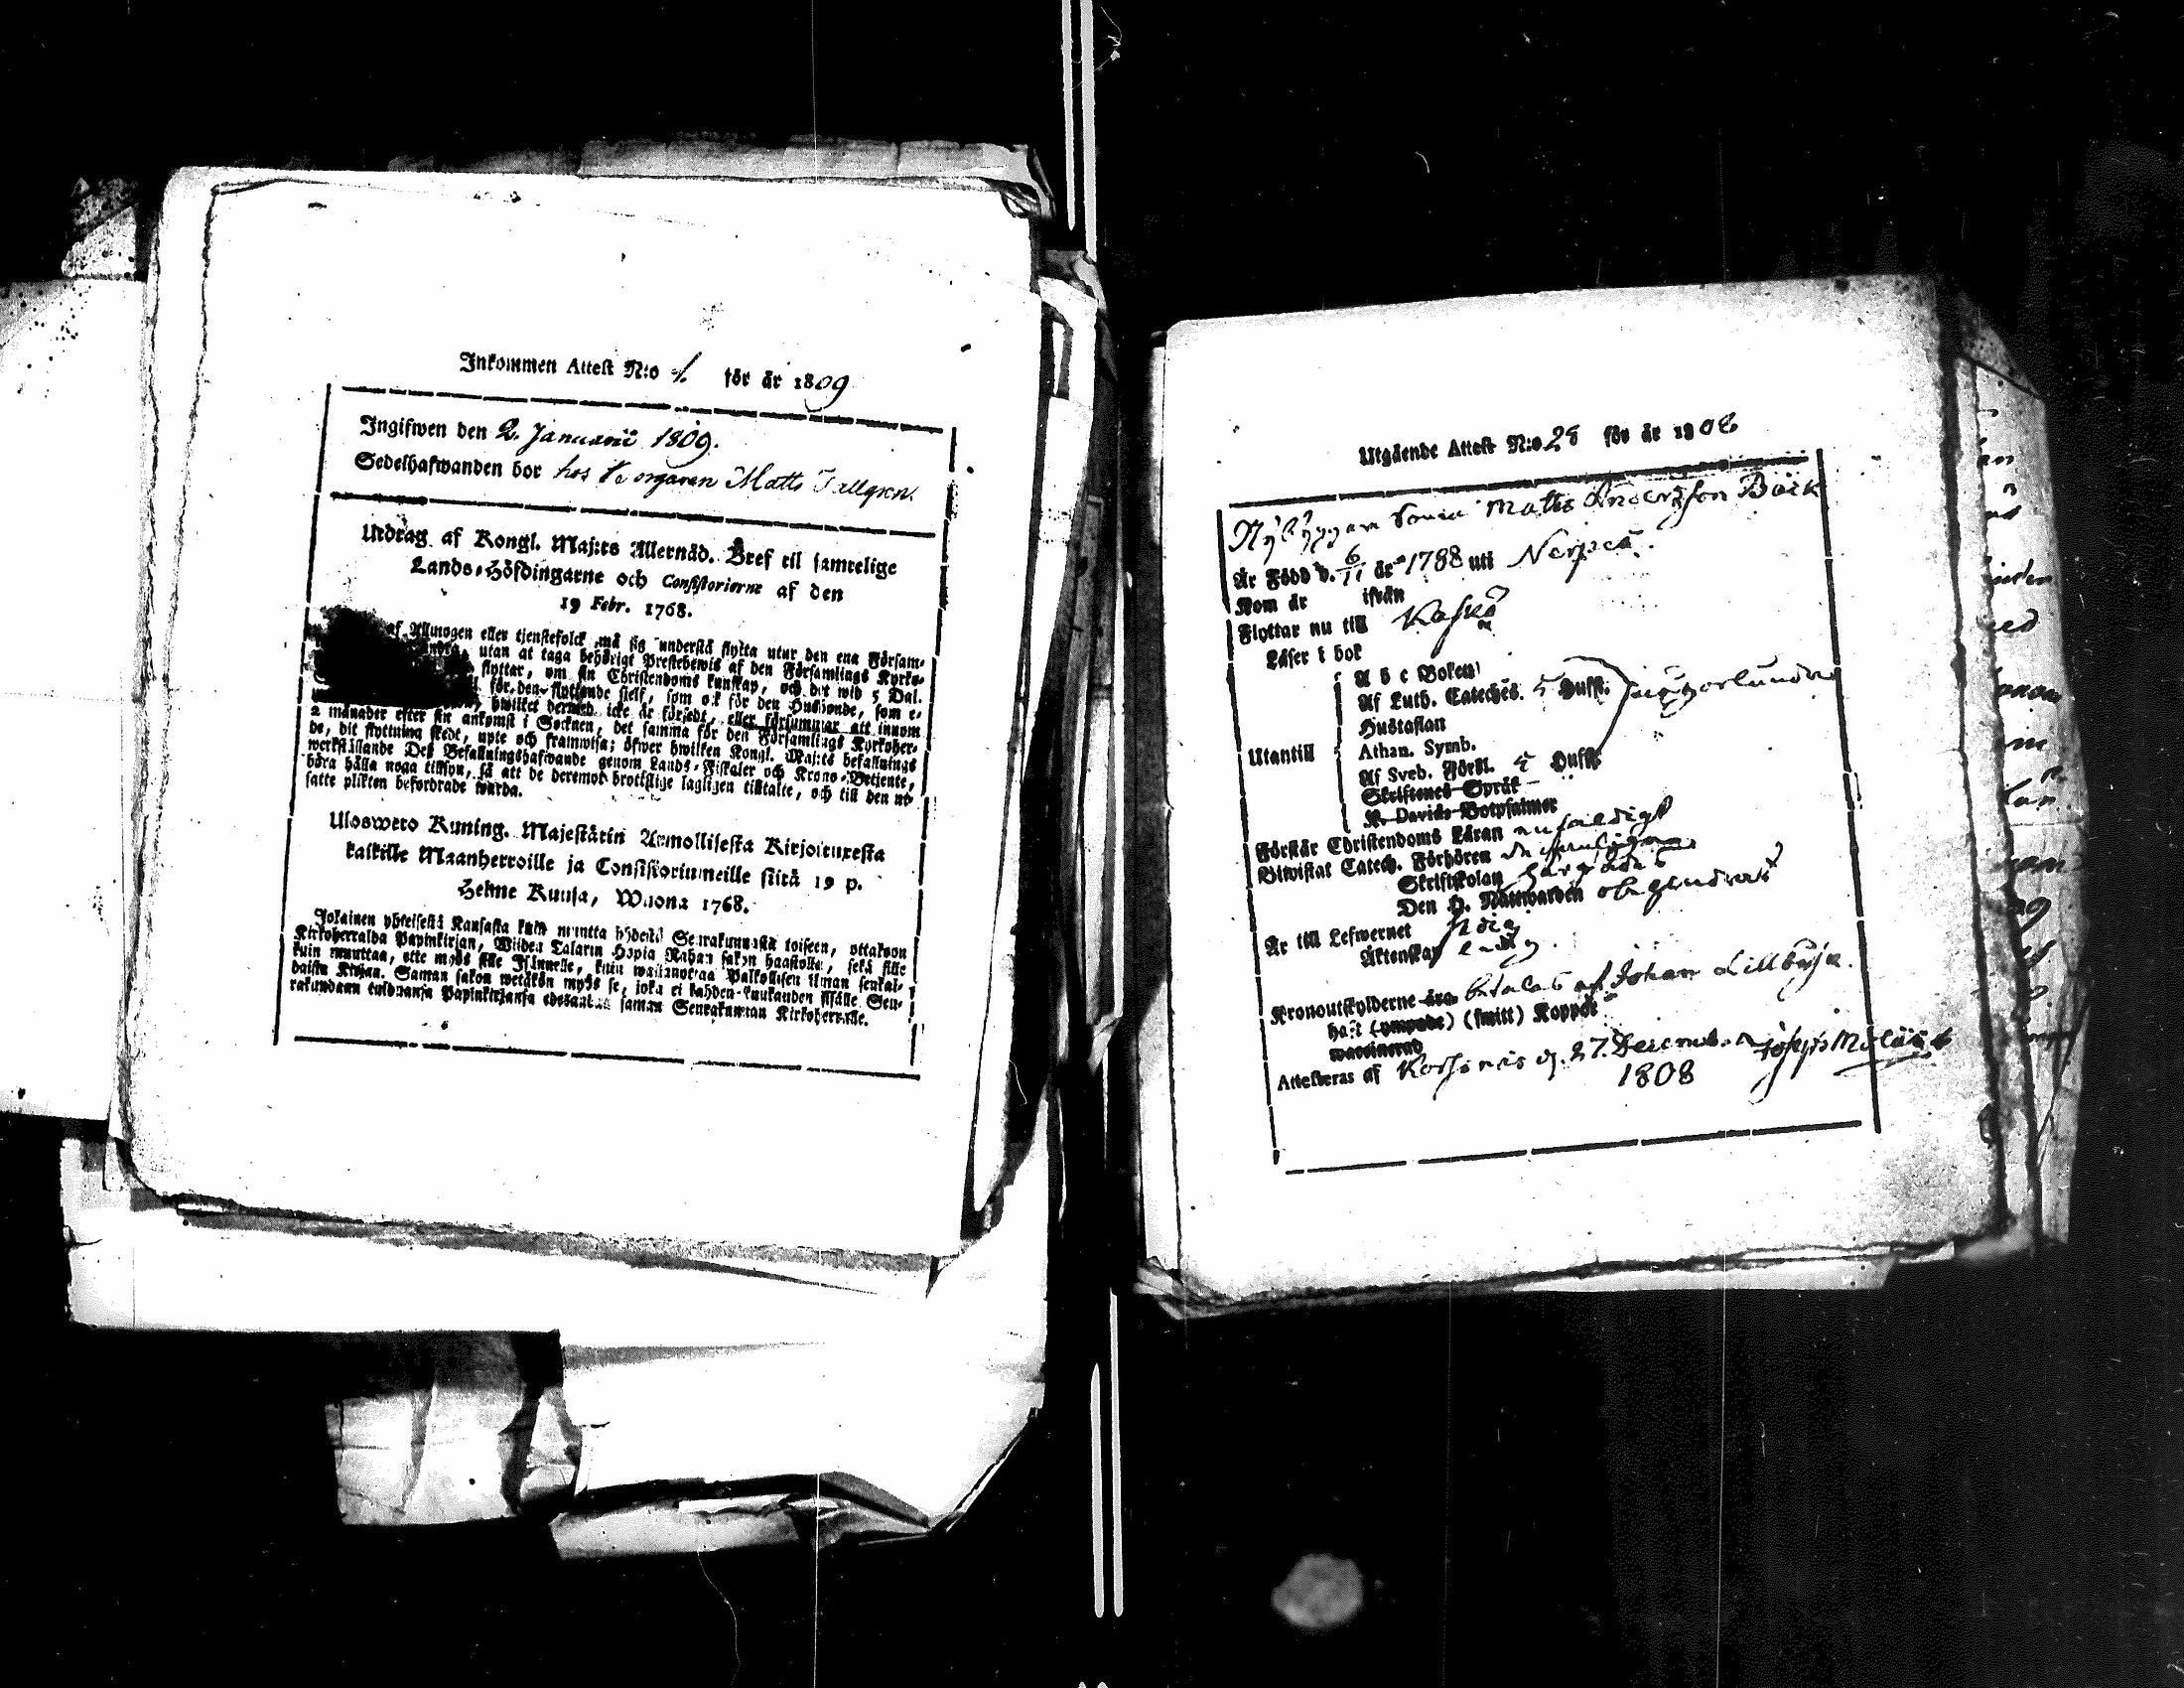 Inkommen Attest N:o 1. för år 1809
Ingifwen den 2. Januarii 1809.
Sedelhafwanden bor hos Borgaren Matts Tallgren.
Utdrag af Kongl. Maj:ts Allernåd. Bref til samtelige
Lands-Höfdingarne och Consistorierne af den
19 Febr. 1768.
af Allmogen eller tjenstefolck må sig understå flytta utur den ena Församl-
andra, utan at taga behörigt Prestebewis af den Församlings Kyrko-
flyttar, om sin Christendoms kunskap, och det wid 5 Dal.
för den flyttande sielf, som ock för den Husbonde, som e-
hwilket dermed icke är försedt, eller försummar att innom
2 månader efter sin ankomst i Socknen, det samma för den Församlings Kyrkoher-
de, dit flyttning skedt, upte och framwisa; öfwer hwilken Kongl. Maj:ts befallnings
werkställande Dess Befallningshafwande genom Lands-Fiskaler och Krono-Betjente,
böra hålla noga tillsyn, så att de deremot brottslige lagligen tilltalte, och till den ut-
satte plikten befordrade warda.
Ulosweto Kuning. Majestätin Armollisesta Kirjoituxesta
kaikille Maanherroille ja Consistoriumeille siitä 19 p.
Helme Kuusa, Wuonna 1768.
Jokainen yhteisestä Kansasta kuin muutta yhdestä Seurakunnasta toiseen, ottakoon
Kirkoherralda Papinkirjan, Wiiden Talarin Hopia Rahan sakon haastolla, sekä sille
kuin muuttaa, ette myös sille Isännelle, kuin wastanottaa Palkollisen ilman senkal-
daista Kirjan. Saman sakon wetäkön myös se, joka ei kahden-kuukauden sisälle Seu-
rakundaan tulduansa Papinkirjansa edesanna saman Seurakunnan Kirkoherralle.
Utgående Attest N:o 28 för år 1808
Nybyggare Sonen Matts Andersson Bäck
Är Född d. 6/11 år 1788 uti Nerpes.
Kom år ifrån
Flyttar nu till Kaskö
Läser i bok
A b c Boken
Af Luth. Cateches. 5 Hufst.
Hustaflan
Utantill
Athan. Symb.
Af Sveb. Förkl. 5 Hufst.
Skriftenes Språk
K. Davids Botpsalmer
Förstår Christendoms Läran enfaldigt
Biwistat Catech. Förhören
Skriftskolan
Den H. Nattwarden
Är till Lefwernet
Äktenskap ledig
Kronoutskylderne äro betalas af Johan Lillbåsk.
haft (ympade) (smitt) Koppor
waccinerad
Attesteras af Korsnäs d. 27. Decemb.
1808